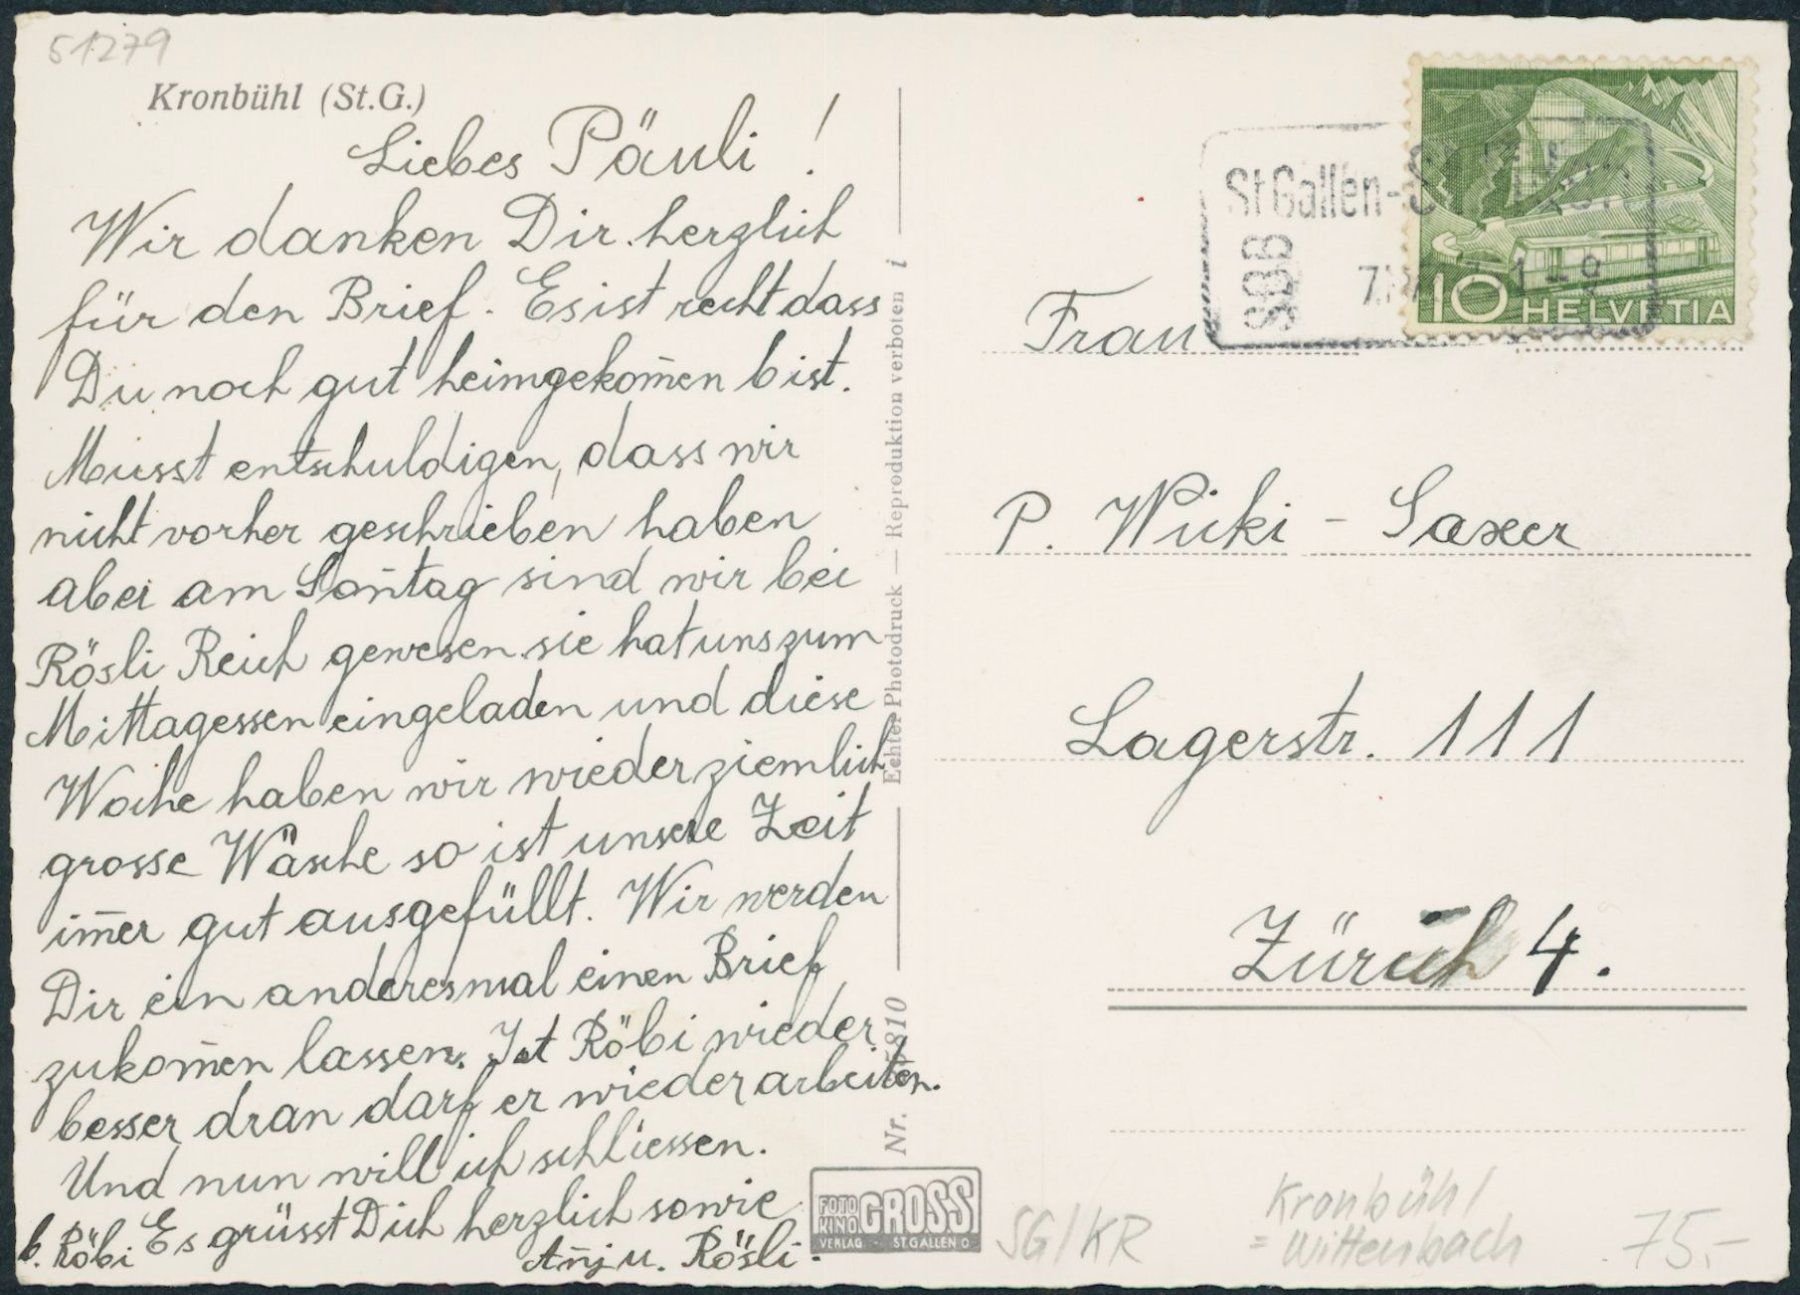 51279
Kronbühl (St.G.)
Liebes Päuli !
Wir danken Dir herzlich
für den Brief. Es ist recht dass
Du noch gut heimgekom̄en bist.
Musst entschuldigen, dass wir
nicht vorher geschrieben haben
aber am Son̄tag sind wir bei
Rösli Reich gewesen sie hat uns zum
Mittagessen eingeladen und diese
Woche haben wir wieder ziemlich
grosse Wäsche so ist unsere Zeit
im̄er gut ausgefüllt. Wir werden
Dir ein anderesmal einen Brief
zukom̄en lassen. Ist Röbi wieder
besser dran darf er wieder arbeiten.
Und nun will ich schliessen.
Es grüsst Dich herzlich sowie
b. Röbi
u. Rösli.
Nr. 5810 Echter Photodruck — Reproduktion verboten i
FOTO KINO GROSS
VERLAG ST.GALLEN O
St Gallen-St
SBB
10 HELVETIA
Frau
P. Wicki - Saxer
Lagerstr. 111
Zürich 4.
SG/KR
Kronbühl
= Wittenbach
75.-